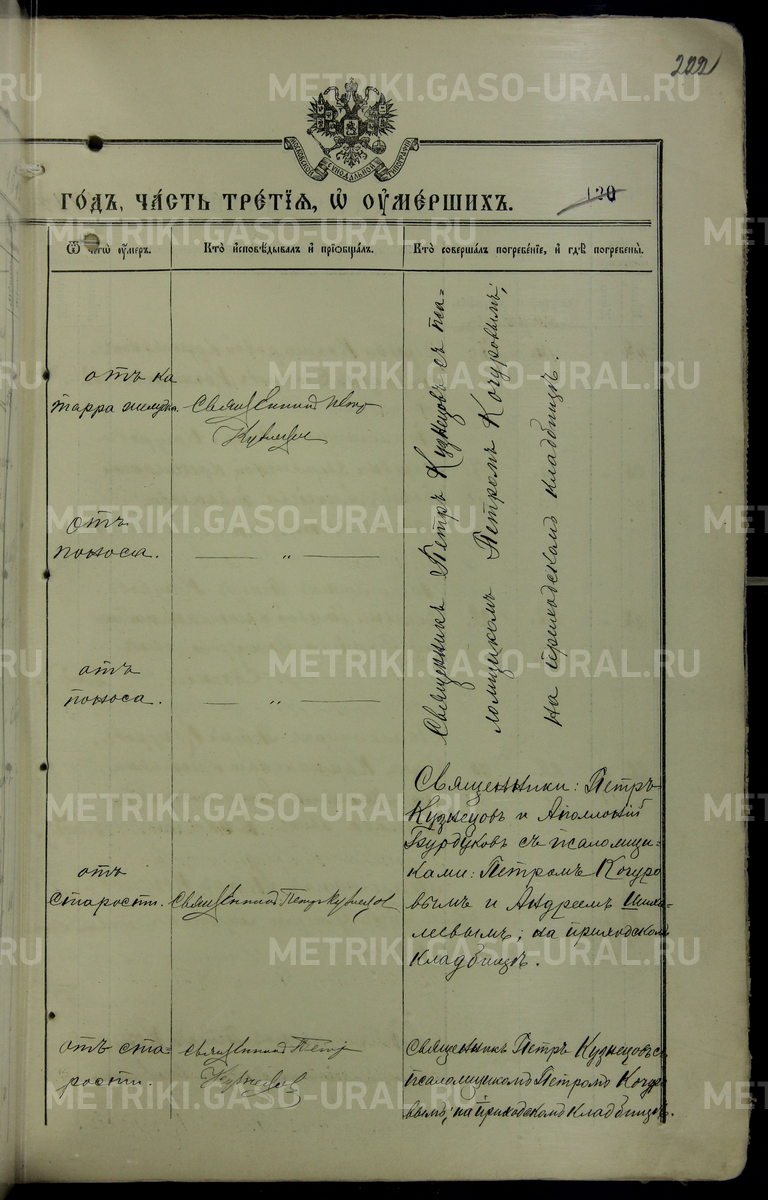 222
МОСКОВСКОЙ СѴНОДАЛЬНОЙ ТИПОГРАФІИ
ГОДЪ, ЧАСТЬ ТРЕТІЯ, Ѡ ОУМЕРШИХЪ.
120
Ѿ чегѡ оумеръ.
Кто исповѣдывалъ и пріобщалъ.
Кто совершалъ погребеніе, и гдѣ погребены.
отъ ка
тарра желудка.
Священникъ Петръ
Кузнецовъ
Священникъ Петръ Кузнецовъ съ пса-
ломщикомъ Петромъ Кочуровымъ;
на приходскомъ кладбищѣ.
отъ
поноса.
— „ —
отъ
поноса.
— „ —
отъ
старости.
Священникъ Петръ Кузнецов
Священники: Петръ
Кузнецовъ и Аполлоній
Бурдуковъ съ псаломщи-
ками: Петромъ Кочуро
вымъ и Андреемъ
левымъ; на приходскомъ
кладбищѣ.
отъ ста-
рости.
Священникъ Петръ
Кузнецов
Священникъ Петръ Кузнецовъ съ
псаломщикомъ Петромъ Кочуро
вымъ; на приходскомъ кладбищѣ.
METRIKI.GASO-URAL.RU